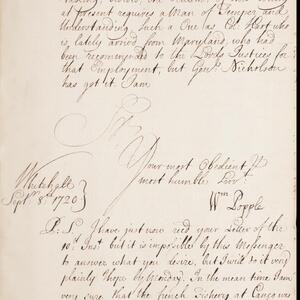 at present requires a Man of Temper and
Understanding such a One as Col. Hart who
is lately arrived from Maryland, who had
been recommended to the Lords Justices for
that Employment, but Genl. Nicholson
has got it. I am
Sr.
Your most Obedient &
most humble Servt.
Whitehall
Septr. 8th 1720
Wm Popple
P.S. I have just now recd your Letter of the
10th Inst. but it is impossible by this Messenger
to answer what you desire, but I will do it very
plainly I hope by Monday. In the mean time I am
very sure that the french Fishery at Canço was